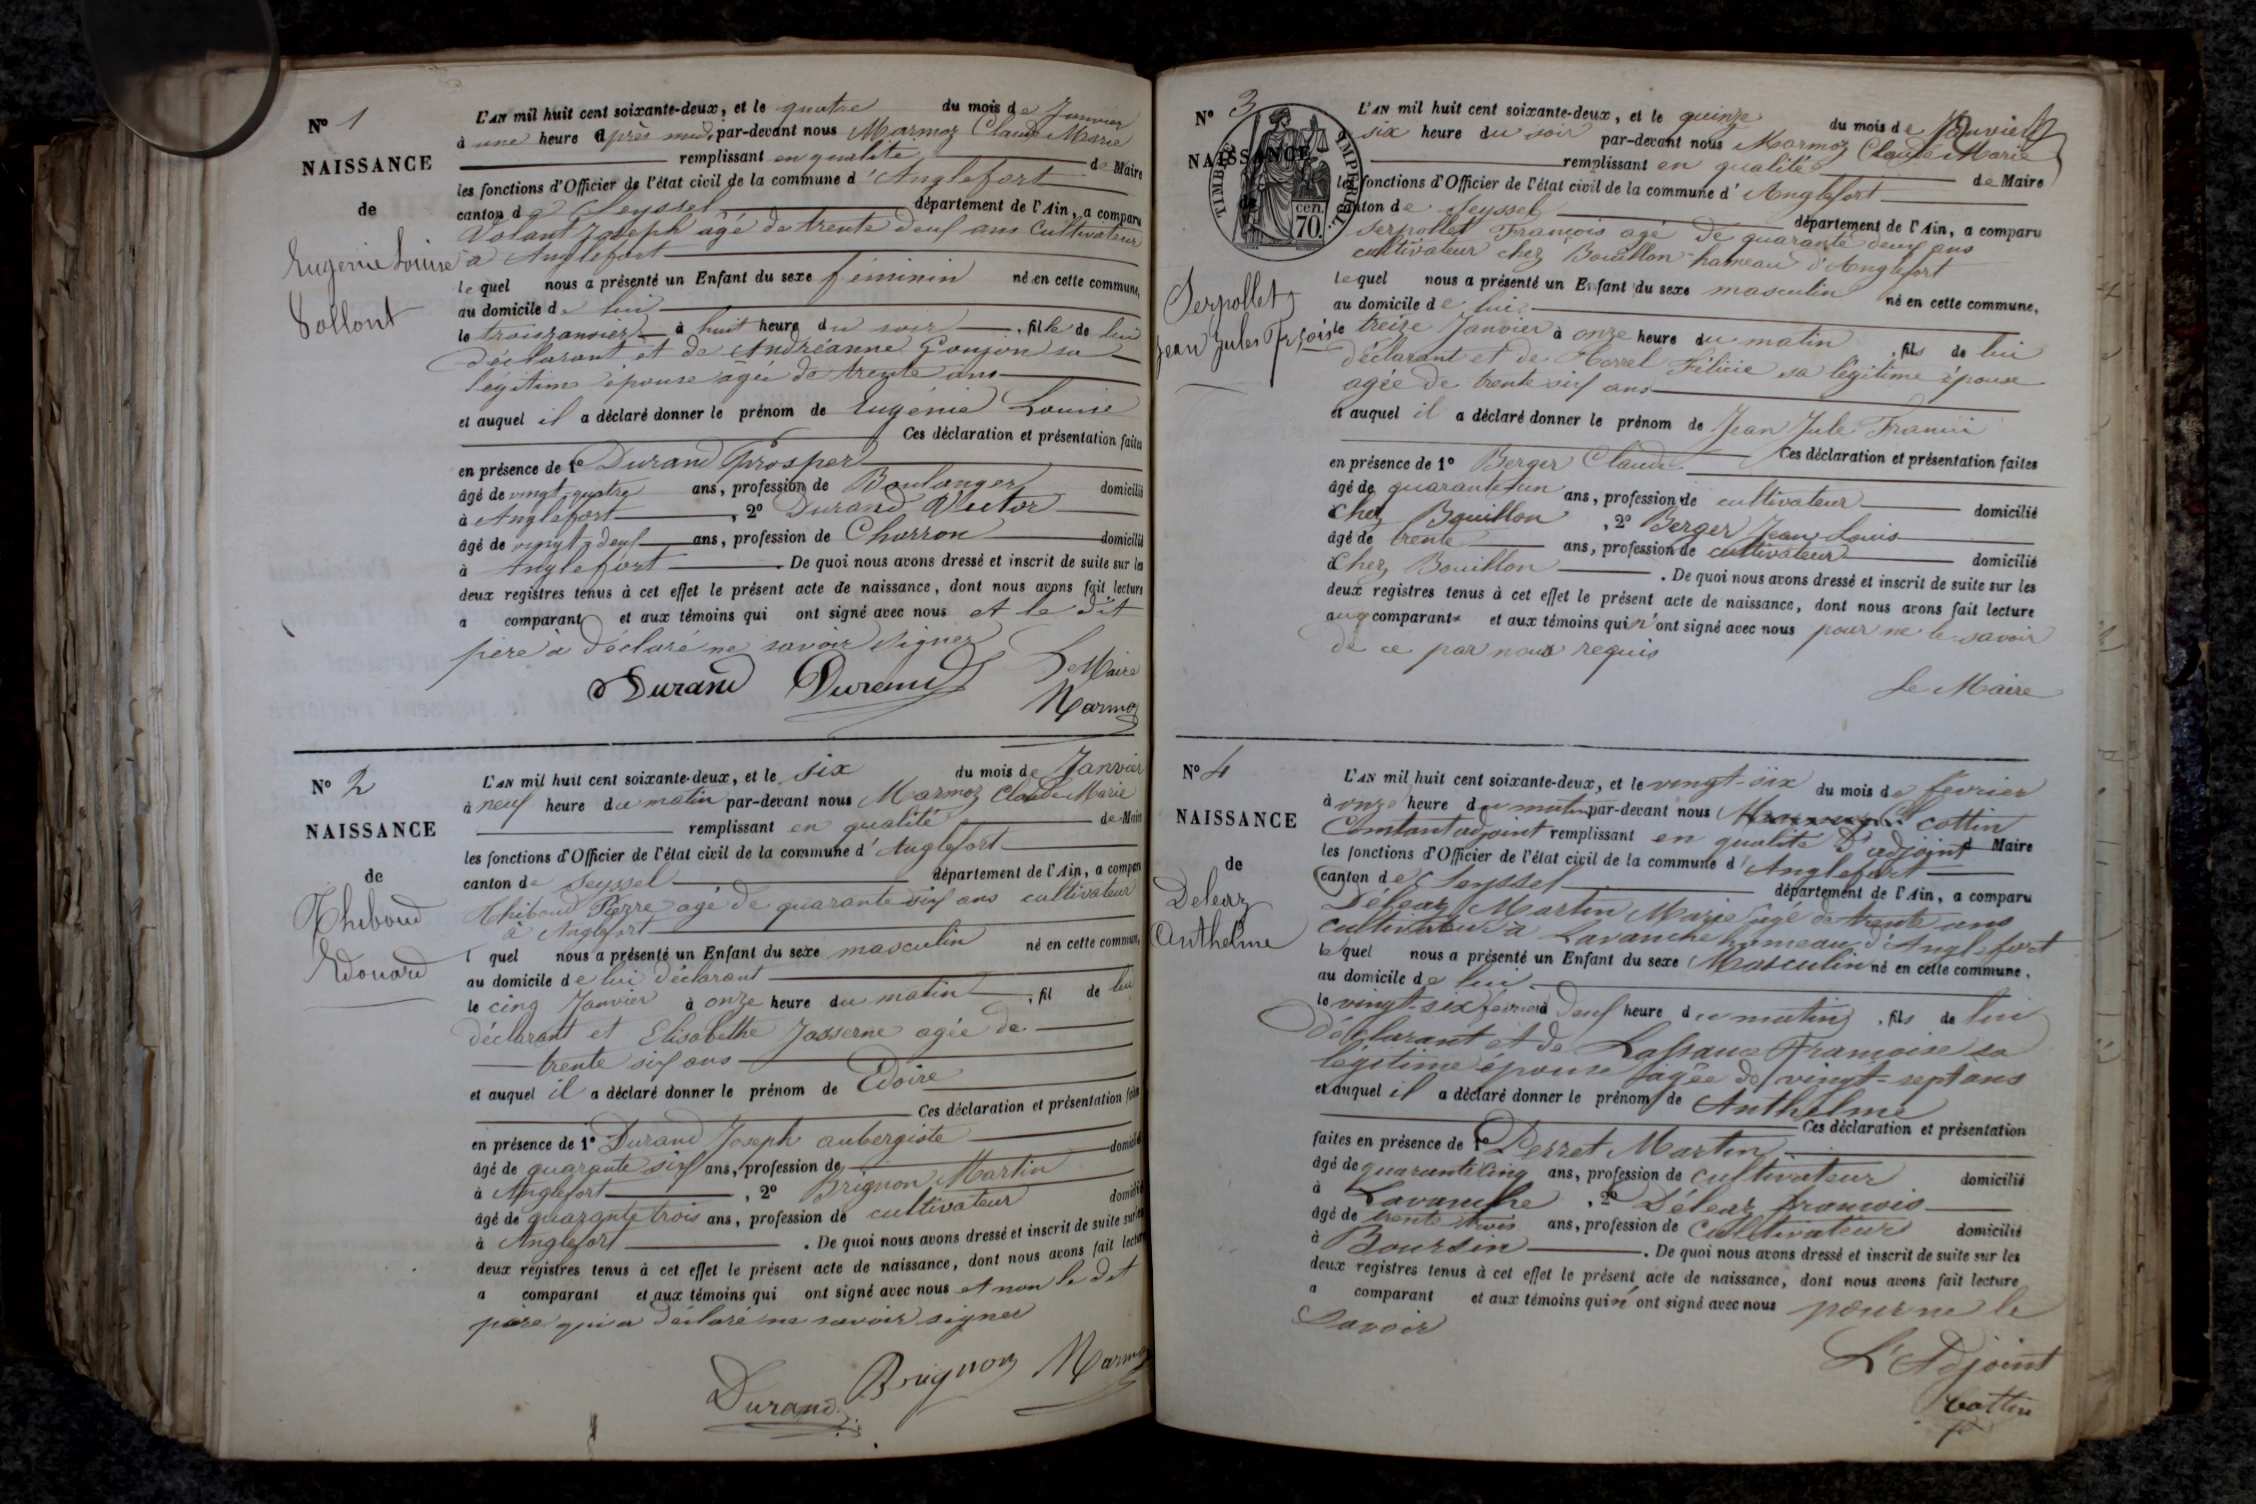 N° 1
NAISSANCE
de
Eugenie Louise
Vollont
L'AN mil huit cent soixante-deux, et le quatre du mois de Janvier
à une heure après midi par-devant nous Marmoz Claude Marie
remplissant en qualité de Maire
les fonctions d'Officier de l'état civil de la commune d'Anglefort
canton de Seyssel département de l'Ain, a comparu
Volant Joseph agé de trente deux ans cultivateur
à Anglefort
lequel nous a présenté un Enfant du sexe féminin né en cette commune,
au domicile de lui
le trois janvier à huit heure du soir, fille de lui
déclarant et de Andréanne Goujon sa
légitime épouse agée de trente ans
et auquel il a déclaré donner le prénom de Eugénie Louise
Ces déclaration et présentation faites
en présence de 1° Durand Prosper
âgé de vingt-quatre ans, profession de Boulanger domicilié
à Anglefort, 2° Durand Victor
âgé de vingt-deux ans, profession de Charron domicilié
à Anglefort. De quoi nous avons dressé et inscrit de suite sur les
deux registres tenus à cet effet le présent acte de naissance, dont nous avons fait lecture
a comparant et aux témoins qui ont signé avec nous et le dit
père à déclaré ne savoir signer
Le Maire
Durand Durand Marmoz
N° 2
NAISSANCE
de
Thiboud
Edouard
L'AN mil huit cent soixante-deux, et le six du mois de Janvier
à neuf heure du matin par-devant nous Marmoz Claude Marie
remplissant en qualité de Maire
les fonctions d'Officier de l'état civil de la commune d'Anglefort
canton de Seyssel département de l'Ain, a comparu
Thiboud Pierre agé de quarante six ans cultivateur
à Anglefort
l quel nous a présenté un Enfant du sexe masculin né en cette commune,
au domicile de lui déclarant
le cinq Janvier à onze heure du matin, fil de lui
déclarant et Elisabethe Jasserne agée de
trente six ans
et auquel il a déclaré donner le prénom de Edoire
Ces déclaration et présentation faites
en présence de 1° Durand Joseph aubergiste
âgé de quarante six ans, profession de domicilié
à Anglefort, 2° Brignon Martin
âgé de quarante trois ans, profession de cultivateur domicilié
à Anglefort. De quoi nous avons dressé et inscrit de suite sur les
deux registres tenus à cet effet le présent acte de naissance, dont nous avons fait lecture
a comparant et aux témoins qui ont signé avec nous et non le dit
père qui a déclaré ne savoir signer
Durand Brignon Marmoz
N° 3
NAISSANCE
de
TIMBRE IMPERIAL
70 cen.
Serpollet
Jean Jules Fçois
L'AN mil huit cent soixante-deux, et le quinze du mois de Janvier
à six heure du soir par-devant nous Marmoz Claude Marie
remplissant en qualité de Maire
les fonctions d'Officier de l'état civil de la commune d'Anglefort
canton de Seyssel département de l'Ain, a comparu
Serpollet François agé de quarante deux ans
cultivateur chez Bouillon hameau d'Anglefort
lequel nous a présenté un Enfant du sexe masculin né en cette commune,
au domicile de lui
le treize Janvier à onze heure du matin, fils de lui
déclarant et de Félicie sa légitime épouse
agée de trente six ans
et auquel il a déclaré donner le prénom de Jean Jule
Ces déclaration et présentation faites
en présence de 1° Berger Claude
âgé de quarante un ans, profession de cultivateur domicilié
à Chez Bouillon, 2° Berger Jean Louis
âgé de trente ans, profession de cultivateur domicilié
à Chez Bouillon. De quoi nous avons dressé et inscrit de suite sur les
deux registres tenus à cet effet le présent acte de naissance, dont nous avons fait lecture
aux comparants et aux témoins qui n'ont signé avec nous pour ne le savoir
de ce par nous requis
Le Maire
N° 4
NAISSANCE
de
Deleaz
Anthelme
L'AN mil huit cent soixante-deux, et le vingt-six du mois de fevrier
à onze heure du matin par-devant nous cottin
Constant adjoint remplissant en qualité d'adjoint d Maire
les fonctions d'Officier de l'état civil de la commune d'Anglefort
canton de Seyssel département de l'Ain, a comparu
Déleaz Martin Marie agé de trente ans
cultivateur à Lavanche hameau d'Anglefort
lequel nous a présenté un Enfant du sexe Masculin né en cette commune,
au domicile de lui
le vingt-six fevrier à deux heure du matin, fils de lui
déclarant et de Françoise sa
légitime épouse agée de vingt-sept ans
et auquel il a déclaré donner le prénom de Anthelme
Ces déclaration et présentation
faites en présence de 1° Perret Martin
âgé de quarante cinq ans, profession de cultivateur domicilié
à Lavanche, 2° Déleaz francois
âgé de trente trois ans, profession de Cultivateur domicilié
à Boursin. De quoi nous avons dressé et inscrit de suite sur les
deux registres tenus à cet effet le présent acte de naissance, dont nous avons fait lecture
a comparant et aux témoins qui n'ont signé avec nous pour ne le
Savoir
L'Adjoint
Cottin